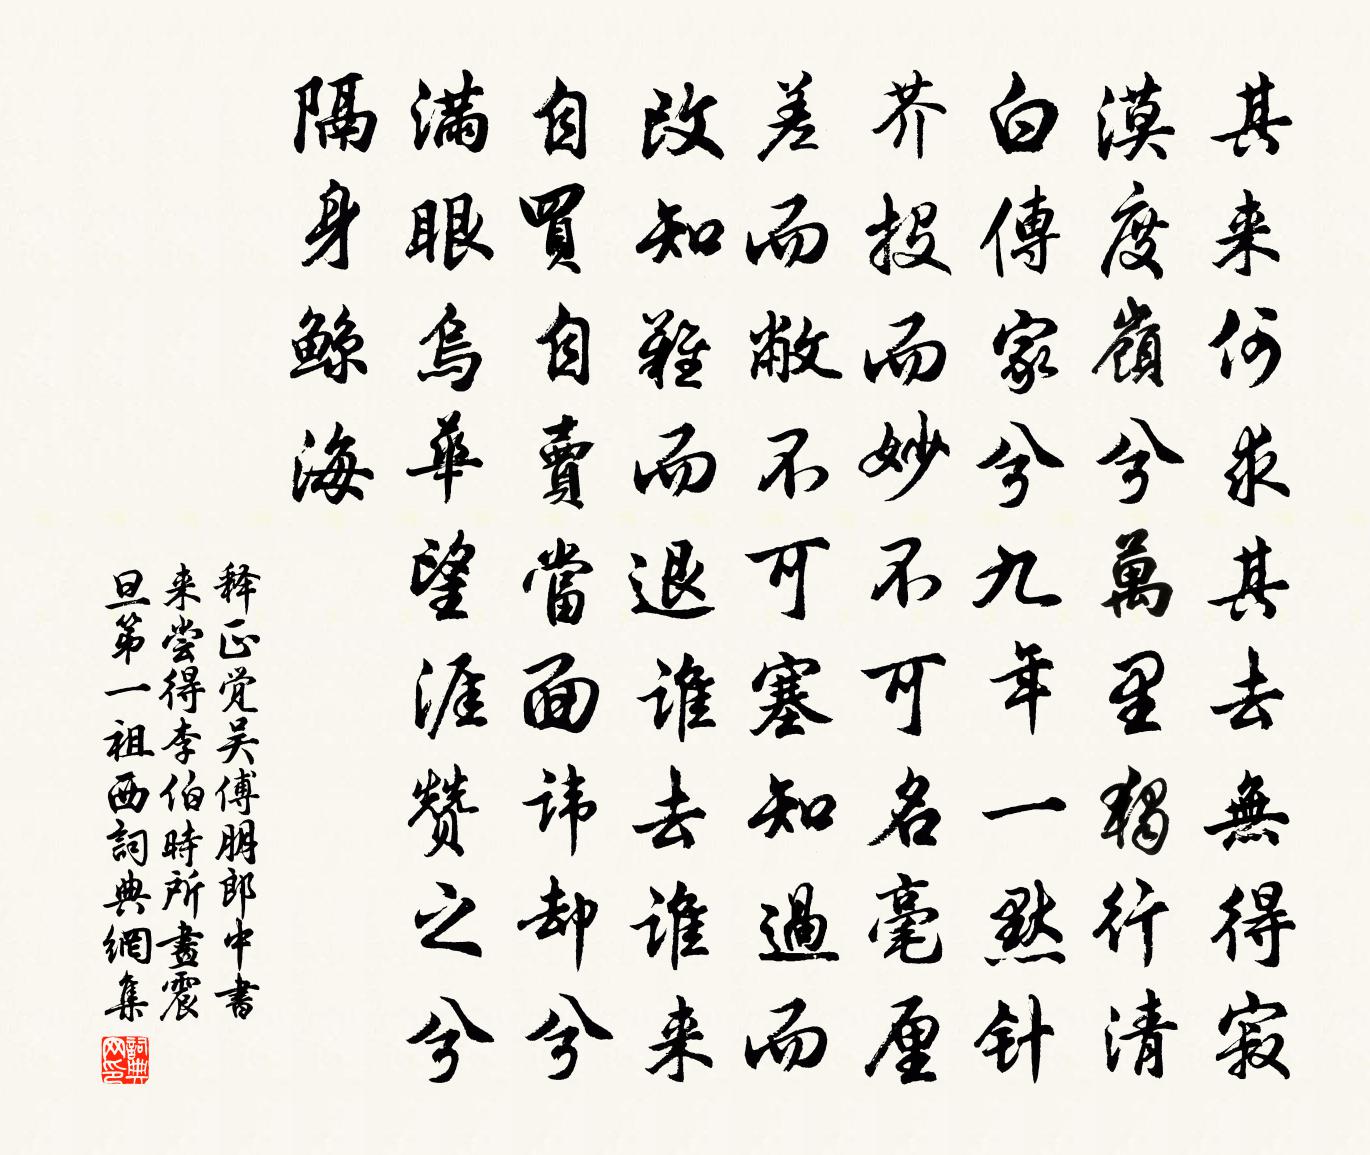 其来何求其去無得寂
漠度嶺兮萬里獨行清
白傳家兮九年一默针
芥投而妙不可名毫厘
差而敝不可塞知過而
改知難而退誰去誰来
自買自賣當面諱却兮
滿眼烏華望涯赞之兮
隔身鲸海
释正觉吴傅朋郎中書
来尝得李伯時所畫震
旦第一祖西詞典網集
詞典网印